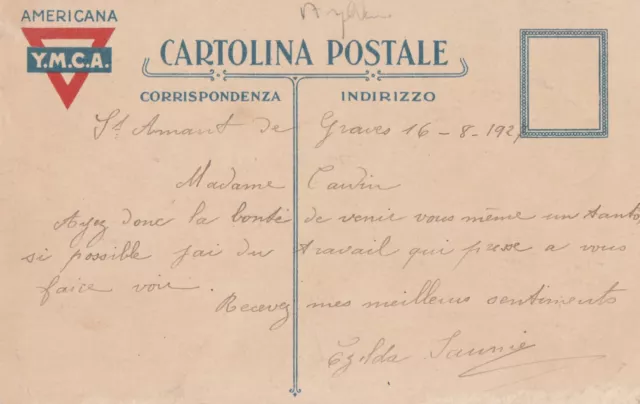 AMERICANA
Y.M.C.A.
CARTOLINA POSTALE
CORRISPONDENZA INDIRIZZO
St Amant de Graves 16-8-1927
Madame Caudin
Ayez donc la bonté de venir vous même un tantot,
si possible jai du travail qui presse a vous
faire voir.
Recevez mes meilleurs sentiments
Ezelda Saunié